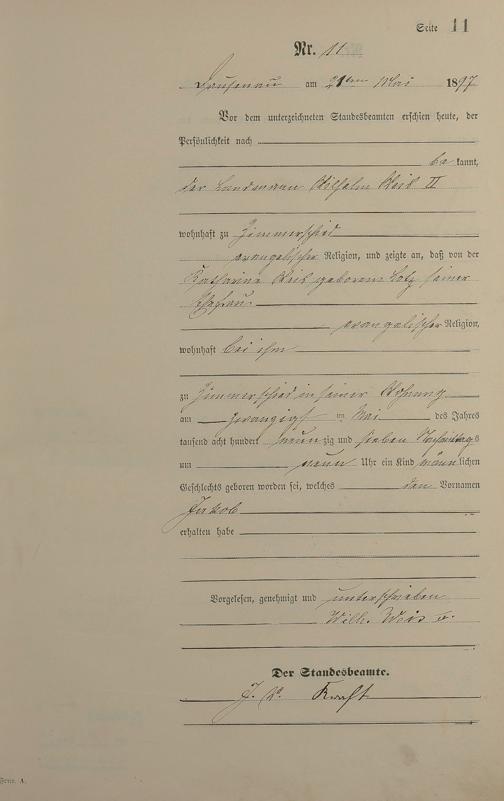 Seite 11
Nr. 11
Dausenau am 21ten Mai 1897
Vor dem unterzeichneten Standesbeamten erschien heute, der
Persönlichkeit nach
be kannt,
der Landmann Wilhelm Weis II
wohnhaft zu Zimmerschied
evangelischer Religion, und zeigte an, daß von der
Katharine Weis geborene Lotz seiner
Ehefrau
evangelischer Religion,
wohnhaft bei ihm
zu Zimmerschied in seiner Wohnung
am zwanzigst en Mai des Jahres
tausend acht hundert neun zig und sieben Nachmittags
um neun Uhr ein Kind männ lichen
Geschlechts geboren worden sei, welches den Vornamen
Jakob
erhalten habe
Vorgelesen, genehmigt und unterschrieben
Wilh. Weis II.
Der Standesbeamte.
Form. A.